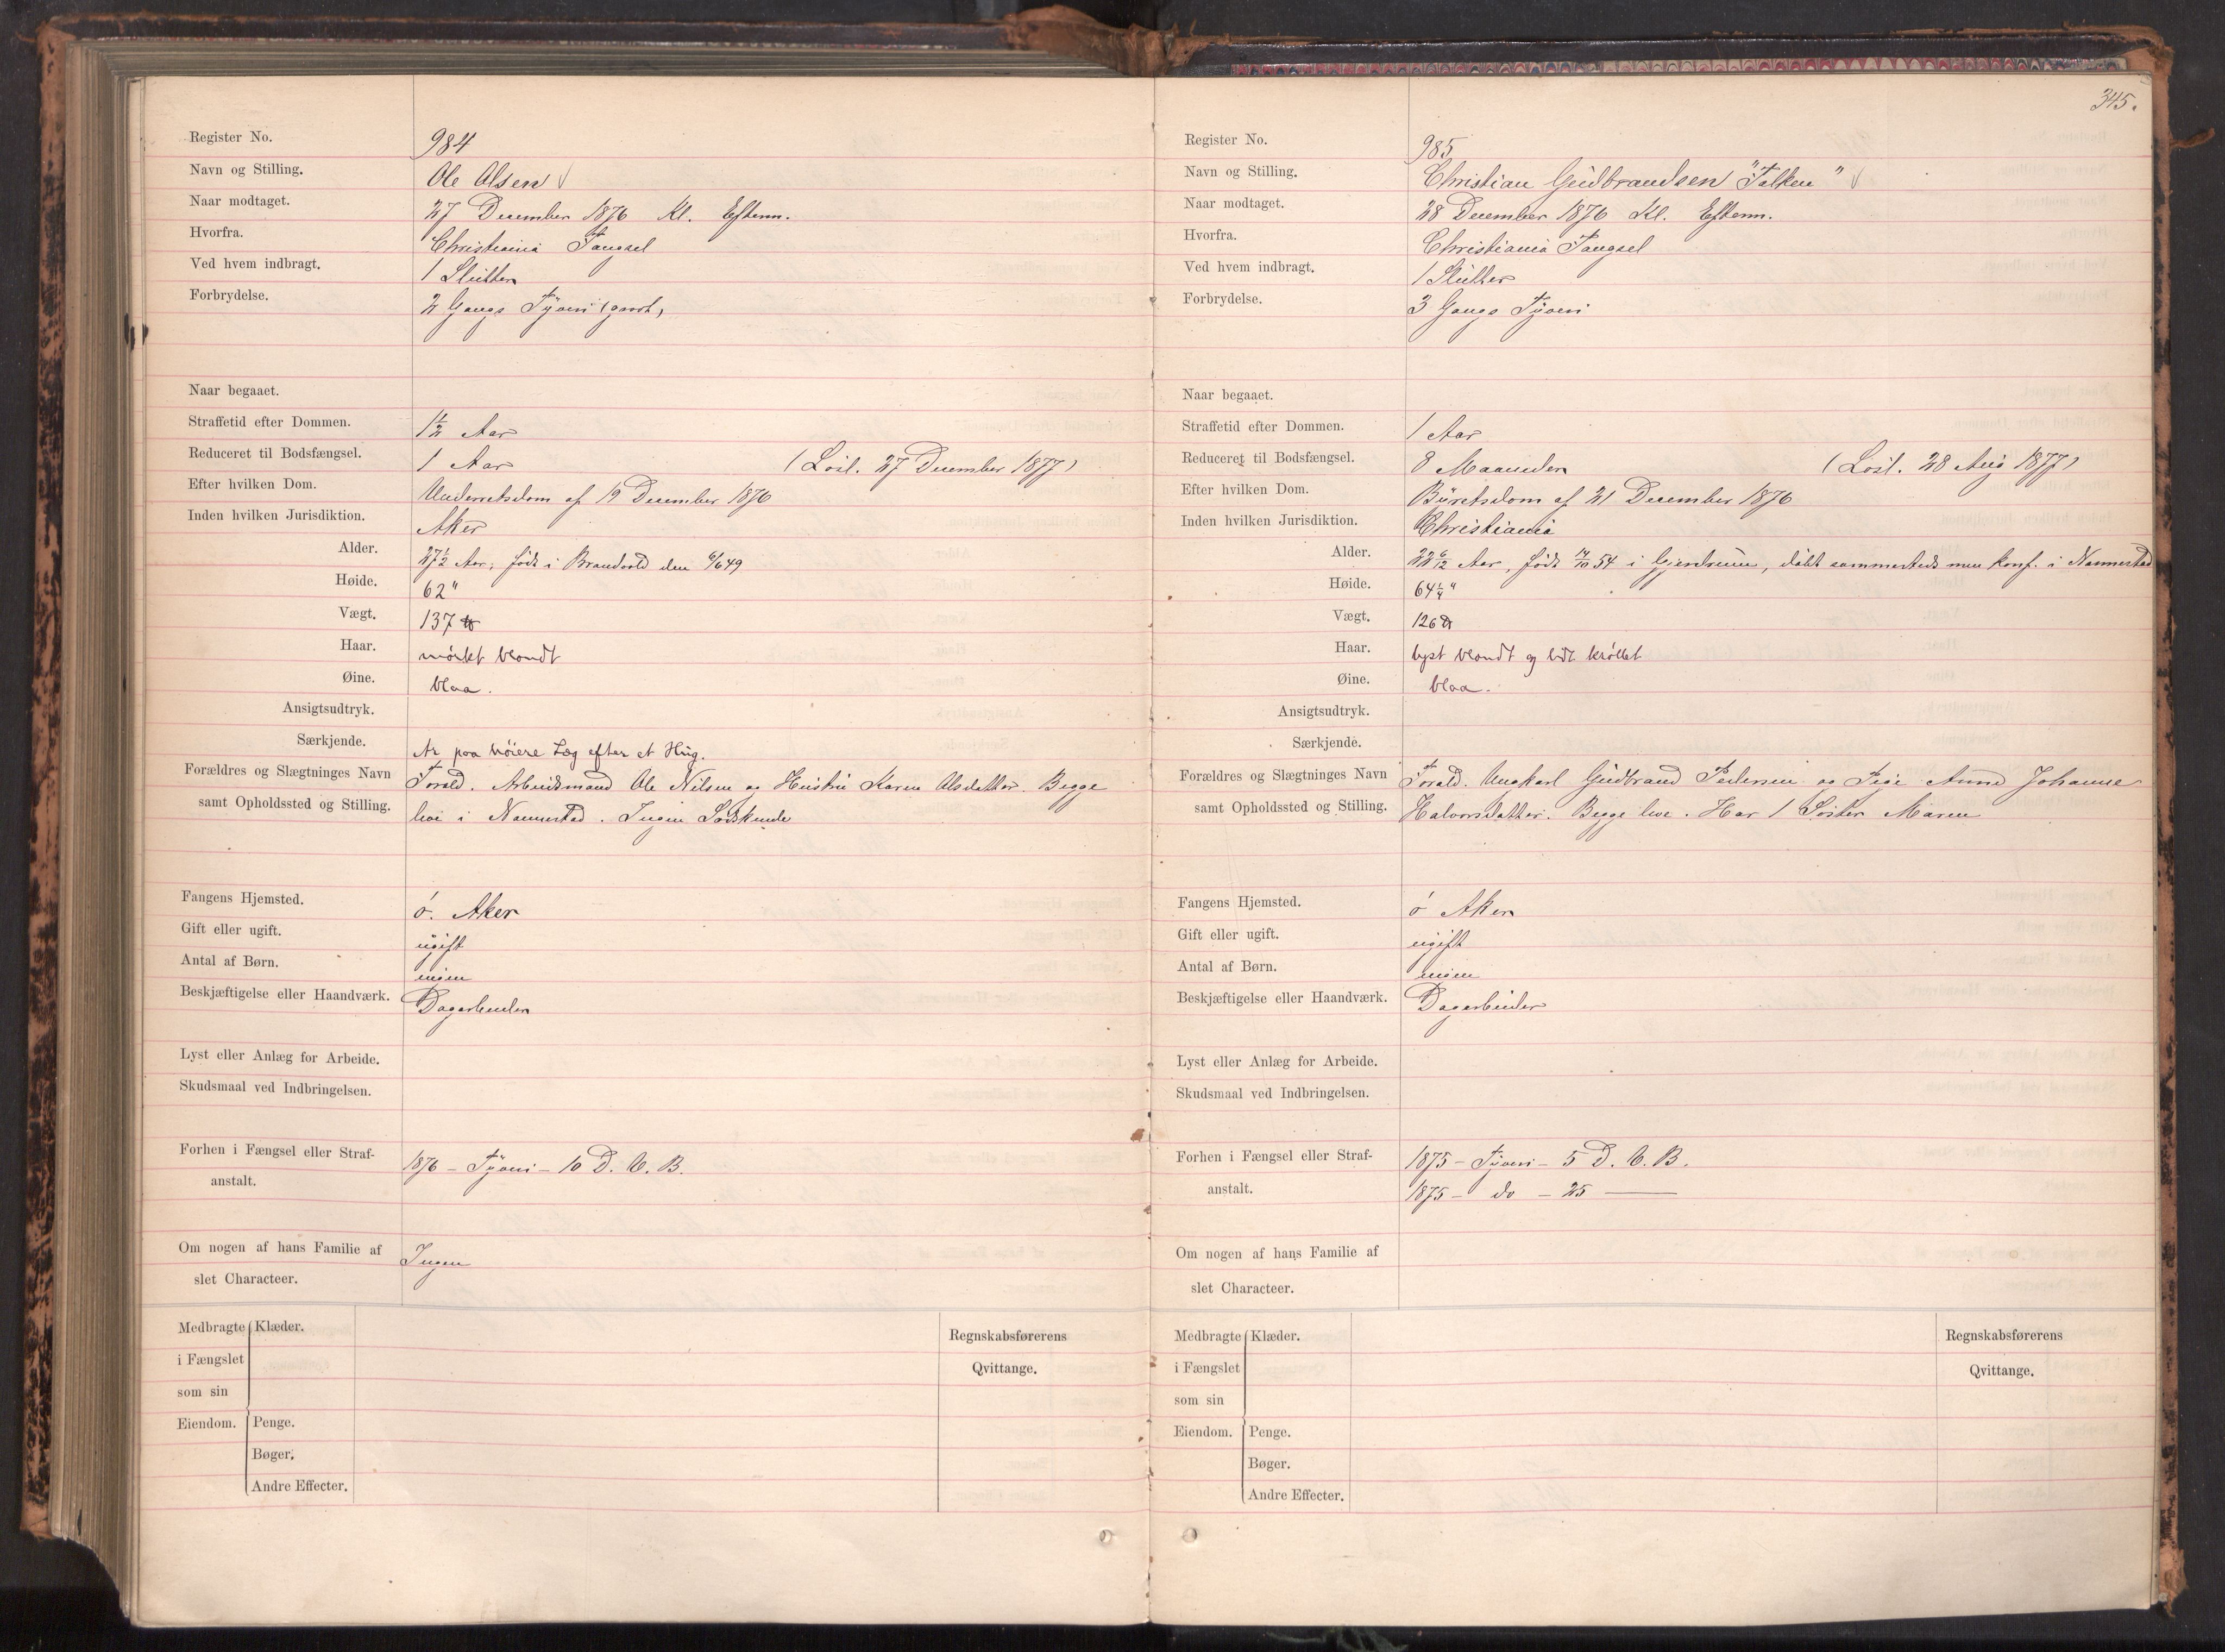 Register No. 984
Navn og Stilling. Ole Olsen √
Naar modtaget. 27 December 1876 Kl. Efterm.
Hvorfra. Christiania Fængsel
Ved hvem indbragt. 1 Slutter
Forbrydelse. 2 Gangs Tyveri (grovt)
Naar begaaet.
Straffetid efter Dommen. 1½ Aar
Reduceret til Bodsfængsel. 1 Aar (Løsl. 27 December 1877)
Efter hvilken Dom. Underretsdom af 19 December 1876
Inden hvilken Jurisdiktion. Aker
Alder. 27½ Aar, født i Brandvold den 6/6 49
Høide. 62"
Vægt. 137 ℔
Haar. mørkt blondt
Øine. blaa.
Ansigtsudtryk.
Særkjende. Ar paa høiere Læg efter et Hug.
Forældres og Slægtninges Navn Foræld. Arbeidsmand Ole Nilsen og Hustru Karen Olsdatter. Begge
samt Opholdssted og Stilling. leve i Nannestad. Ingen Sødskende
Fangens Hjemsted. ø. Aker
Gift eller ugift. ugift
Antal af Børn. ingen
Beskjæftigelse eller Haandværk. Dagarbeider
Lyst eller Anlæg for Arbeide.
Skudsmaal ved Indbringelsen.
Forhen i Fængsel eller Straf- 1876 – Tyveri – 10 D. V. B.
anstalt.
Om nogen af hans Familie af Ingen
slet Characteer.
Medbragte Klæder. Regnskabsførerens
i Fængslet Qvittange.
som sin
Eiendom. Penge.
Bøger.
Andre Effecter.
345.
Register No. 985
Navn og Stilling. Christian Gudbrandsen "Falken" √
Naar modtaget. 28 December 1876 Kl. Efterm.
Hvorfra. Christiania Fængsel
Ved hvem indbragt. 1 Slutter
Forbrydelse. 3 Gangs Tyveri
Naar begaaet.
Straffetid efter Dommen. 1 Aar
Reduceret til Bodsfængsel. 8 Maaneder (Løsl. 28 Aug 1877)
Efter hvilken Dom. Byretsdom af 21 December 1876
Inden hvilken Jurisdiktion. Christiania
Alder. Aar, født 54 i Gjerdrum, døbt sammesteds men konf. i Nannestad
Høide. 64¼"
Vægt. 126 ℔
Haar. lyst blondt og lidt krøllet
Øine. blaa.
Ansigtsudtryk.
Særkjende.
Forældres og Slægtninges Navn Foræld. Ungkarl Gudbrand Pedersen og Pige Anne Johanne
samt Opholdssted og Stilling. Halvorsdatter. Begge leve. Har 1 Søster Maren
Fangens Hjemsted. ø Aker
Gift eller ugift. ugift
Antal af Børn. ingen
Beskjæftigelse eller Haandværk. Dagarbeider
Lyst eller Anlæg for Arbeide.
Skudsmaal ved Indbringelsen.
Forhen i Fængsel eller Straf- 1875 – Tyveri – 5 D. V. B.
anstalt. 1875 – do – 25 —
Om nogen af hans Familie af
slet Characteer.
Medbragte Klæder. Regnskabsførerens
i Fængslet Qvittange.
som sin
Eiendom. Penge.
Bøger.
Andre Effecter.